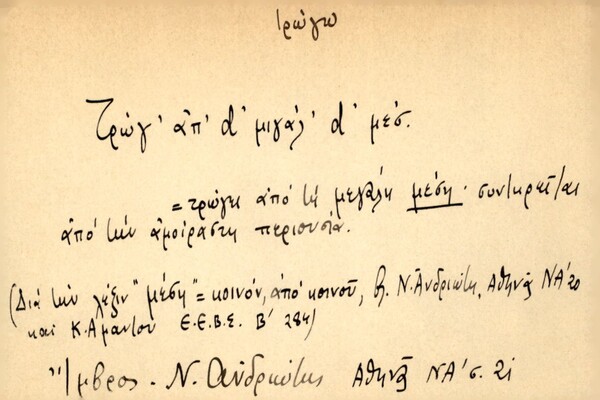 τρώγω
Τρώγ' ἀπ' d' μιγάλ' d' μέσ'.
= τρώγει ἀπό τή μεγάλη μέση· συντηρεῖται
ἀπό τήν ἀμοίραστη περιουσία.
(Διά τήν λέξιν "μέση" = κοινόν, ἀπό κοινοῦ, β. Ν. Ἀνδριώτη, Ἀθηνᾶ ΝΑ' 20
καί Κ. Ἀμάντου Ε.Ε.Β.Σ. Β' 284)
Ἴμβρος - Ν. Ἀνδριώτης Ἀθηνᾶ ΝΑ' σ. 21